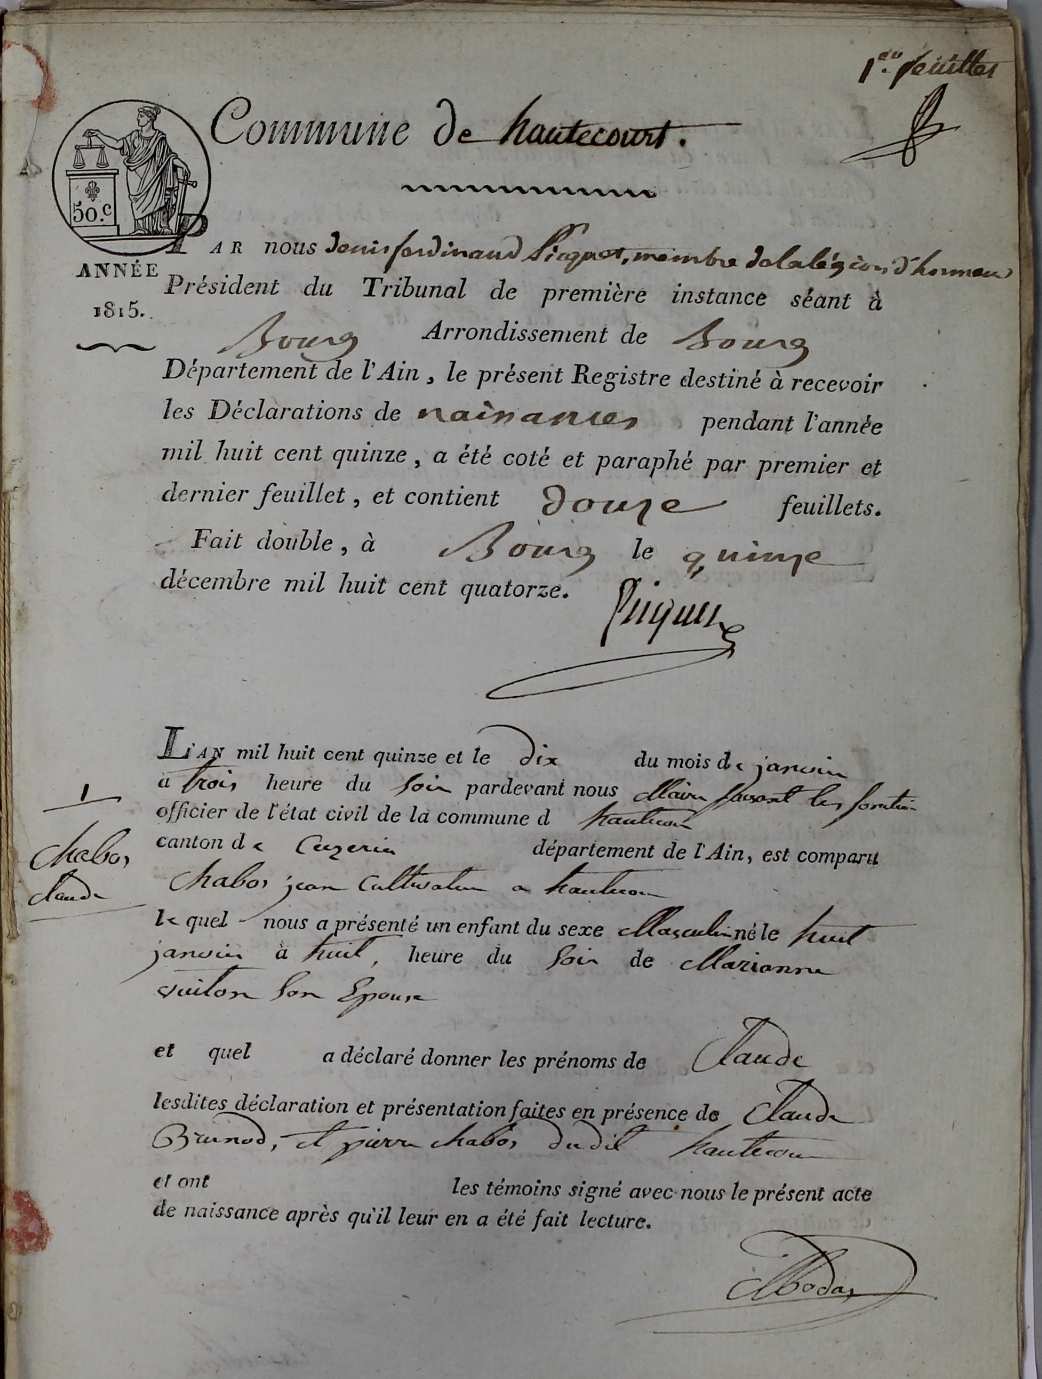 1er feuillet
Commune de hautecourt.
50.c
ANNÉE
1815.
PAR nous denis ferdinand Picquet, membre de la légion d'honneur
Président du Tribunal de première instance séant à
Bourg Arrondissement de Bourg
Département de l'Ain, le présent Registre destiné à recevoir
les Déclarations de naissances pendant l'année
mil huit cent quinze, a été coté et paraphé par premier et
dernier feuillet, et contient douze feuillets.
Fait double, à Bourg le quinze
décembre mil huit cent quatorze.
Picquet
1
Chabos
Claude
L'AN mil huit cent quinze et le dix du mois de janvier
à trois heure du soir pardevant nous Maire faisant les fonction
officier de l'état civil de la commune d hautecour
canton de Ceyzeria département de l'Ain, est comparu
Chabos jean Cultivateur a hautecour
le quel nous a présenté un enfant du sexe Masculin né le huit
janvier à huit, heure du soir de Marianne
son Epouse
et quel a déclaré donner les prénoms de Claude
lesdites déclaration et présentation faites en présence de Claude
Brunod, et pierre chabos dudit hautecour
et ont les témoins signé avec nous le présent acte
de naissance après qu'il leur en a été fait lecture.